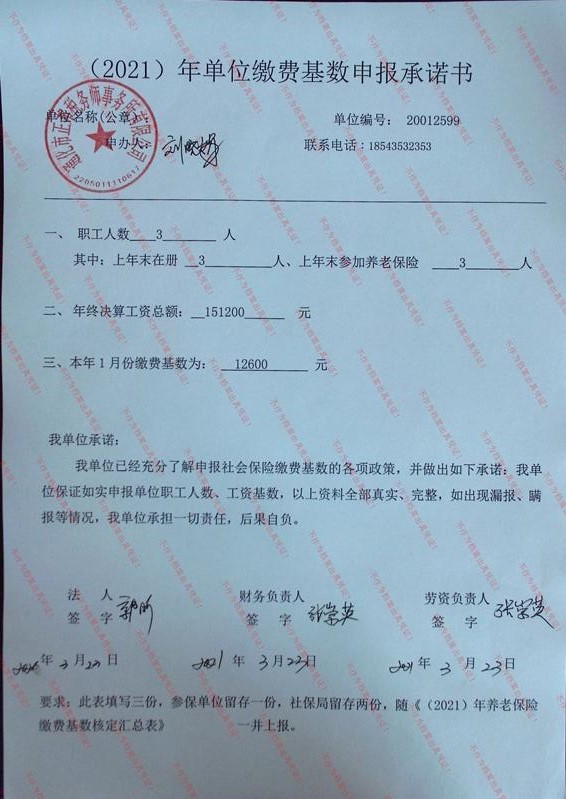 （2021）年单位缴费基数申报承诺书
单位名称(公章) 单位编号： 20012599
申办人： 联系电话：18543532353
市正 税务师事务所有限公司
2205011110617
一、 职工人数 3 人
其中：上年末在册 3 人、上年末参加养老保险 3 人
二、 年终决算工资总额： 151200 元
三、本年1月份缴费基数为： 12600 元
我单位承诺：
我单位已经充分了解申报社会保险缴费基数的各项政策，并做出如下承诺：我单
位保证如实申报单位职工人数、工资基数，以上资料全部真实、完整，如出现漏报、瞒
报等情况，我单位承担一切责任，后果自负。
法 人 财务负责人 劳资负责人
签 字 签 字 张崇英 签 字 张崇英
年 3 月 23 日 2021 年 3 月 23 日 2021 年 3 月 23 日
要求：此表填写三份，参保单位留存一份，社保局留存两份，随《（2021）年养老保险
缴费基数核定汇总表》 一并上报。